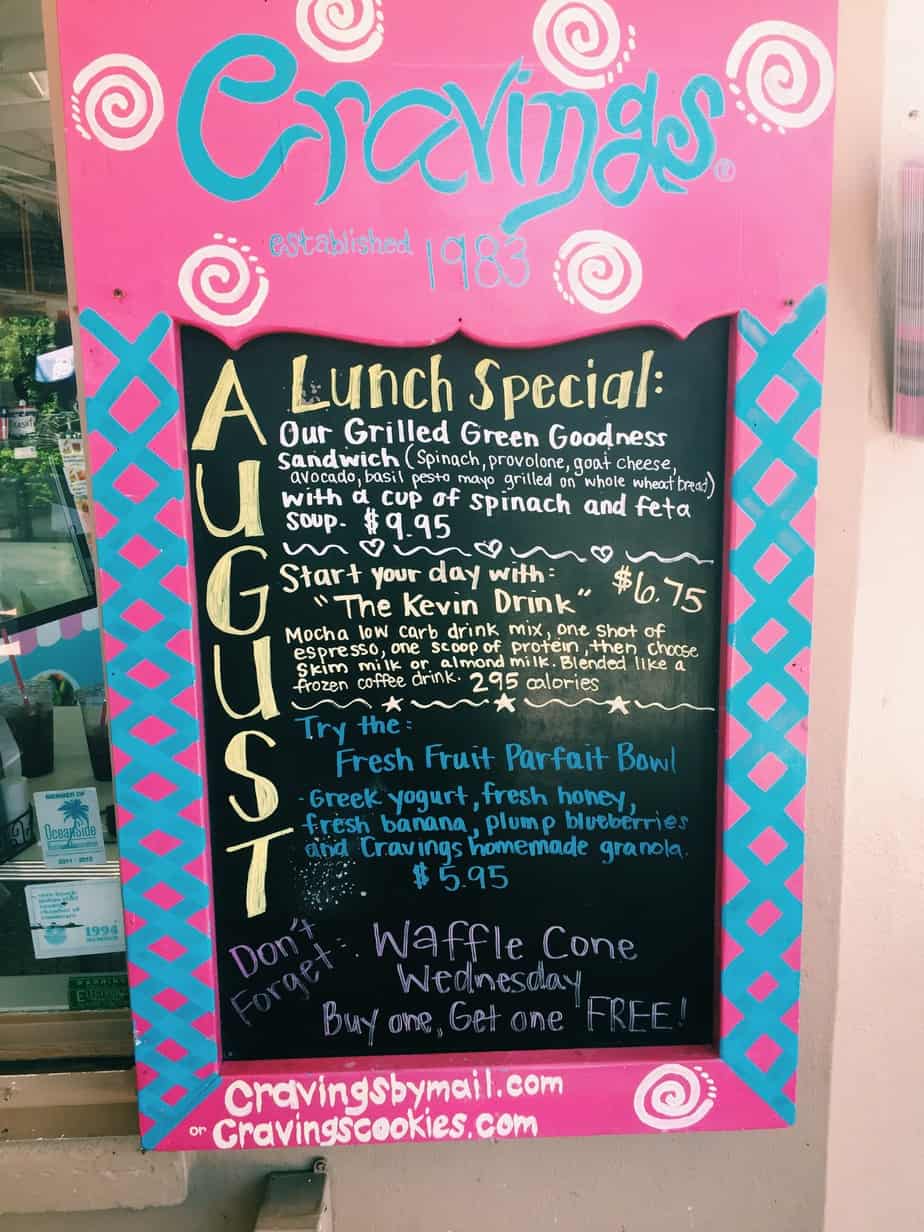 Cravings®
established 1983
AUGUST
Lunch Special:
Our Grilled Green Goodness
Sandwich (Spinach, provolone, goat cheese,
avocado, basil pesto mayo grilled on whole wheat bread)
with a cup of spinach and feta
soup. $9.95
Start your day with: $6.75
"The Kevin Drink"
Mocha low carb drink mix, one shot of
espresso, one scoop of protein, then choose
skim milk or almond milk. Blended like a
frozen coffee drink. 295 calories
Try the:
Fresh Fruit Parfait Bowl
-Greek yogurt, fresh honey,
fresh banana, plump blueberries
and Cravings homemade granola.
$5.95
Don't
Forget: Waffle Cone
Wednesday
Buy one, Get one FREE!
Cravingsbymail.com
or Cravingscookies.com
MEMBER OF
OceanSide
1994